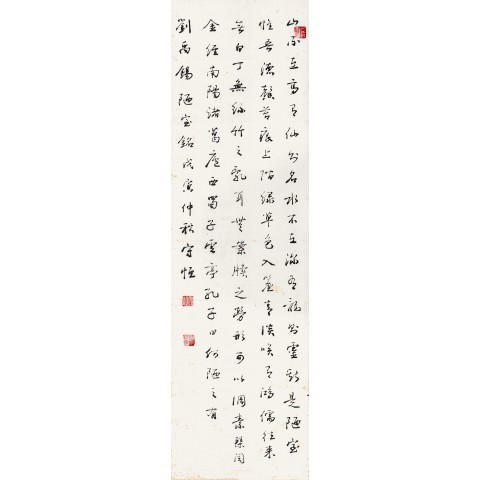 山不在高有仙則名水不在深有龍則靈斯是陋室
惟吾德馨苔痕上階綠草色入簾青談笑有鴻儒往來
無白丁無絲竹之亂耳無案牘之勞形可以調素琴閱
金經南陽諸葛廬西蜀子雲亭孔子曰何陋之有
劉禹錫陋室銘戊寅仲秋守恒